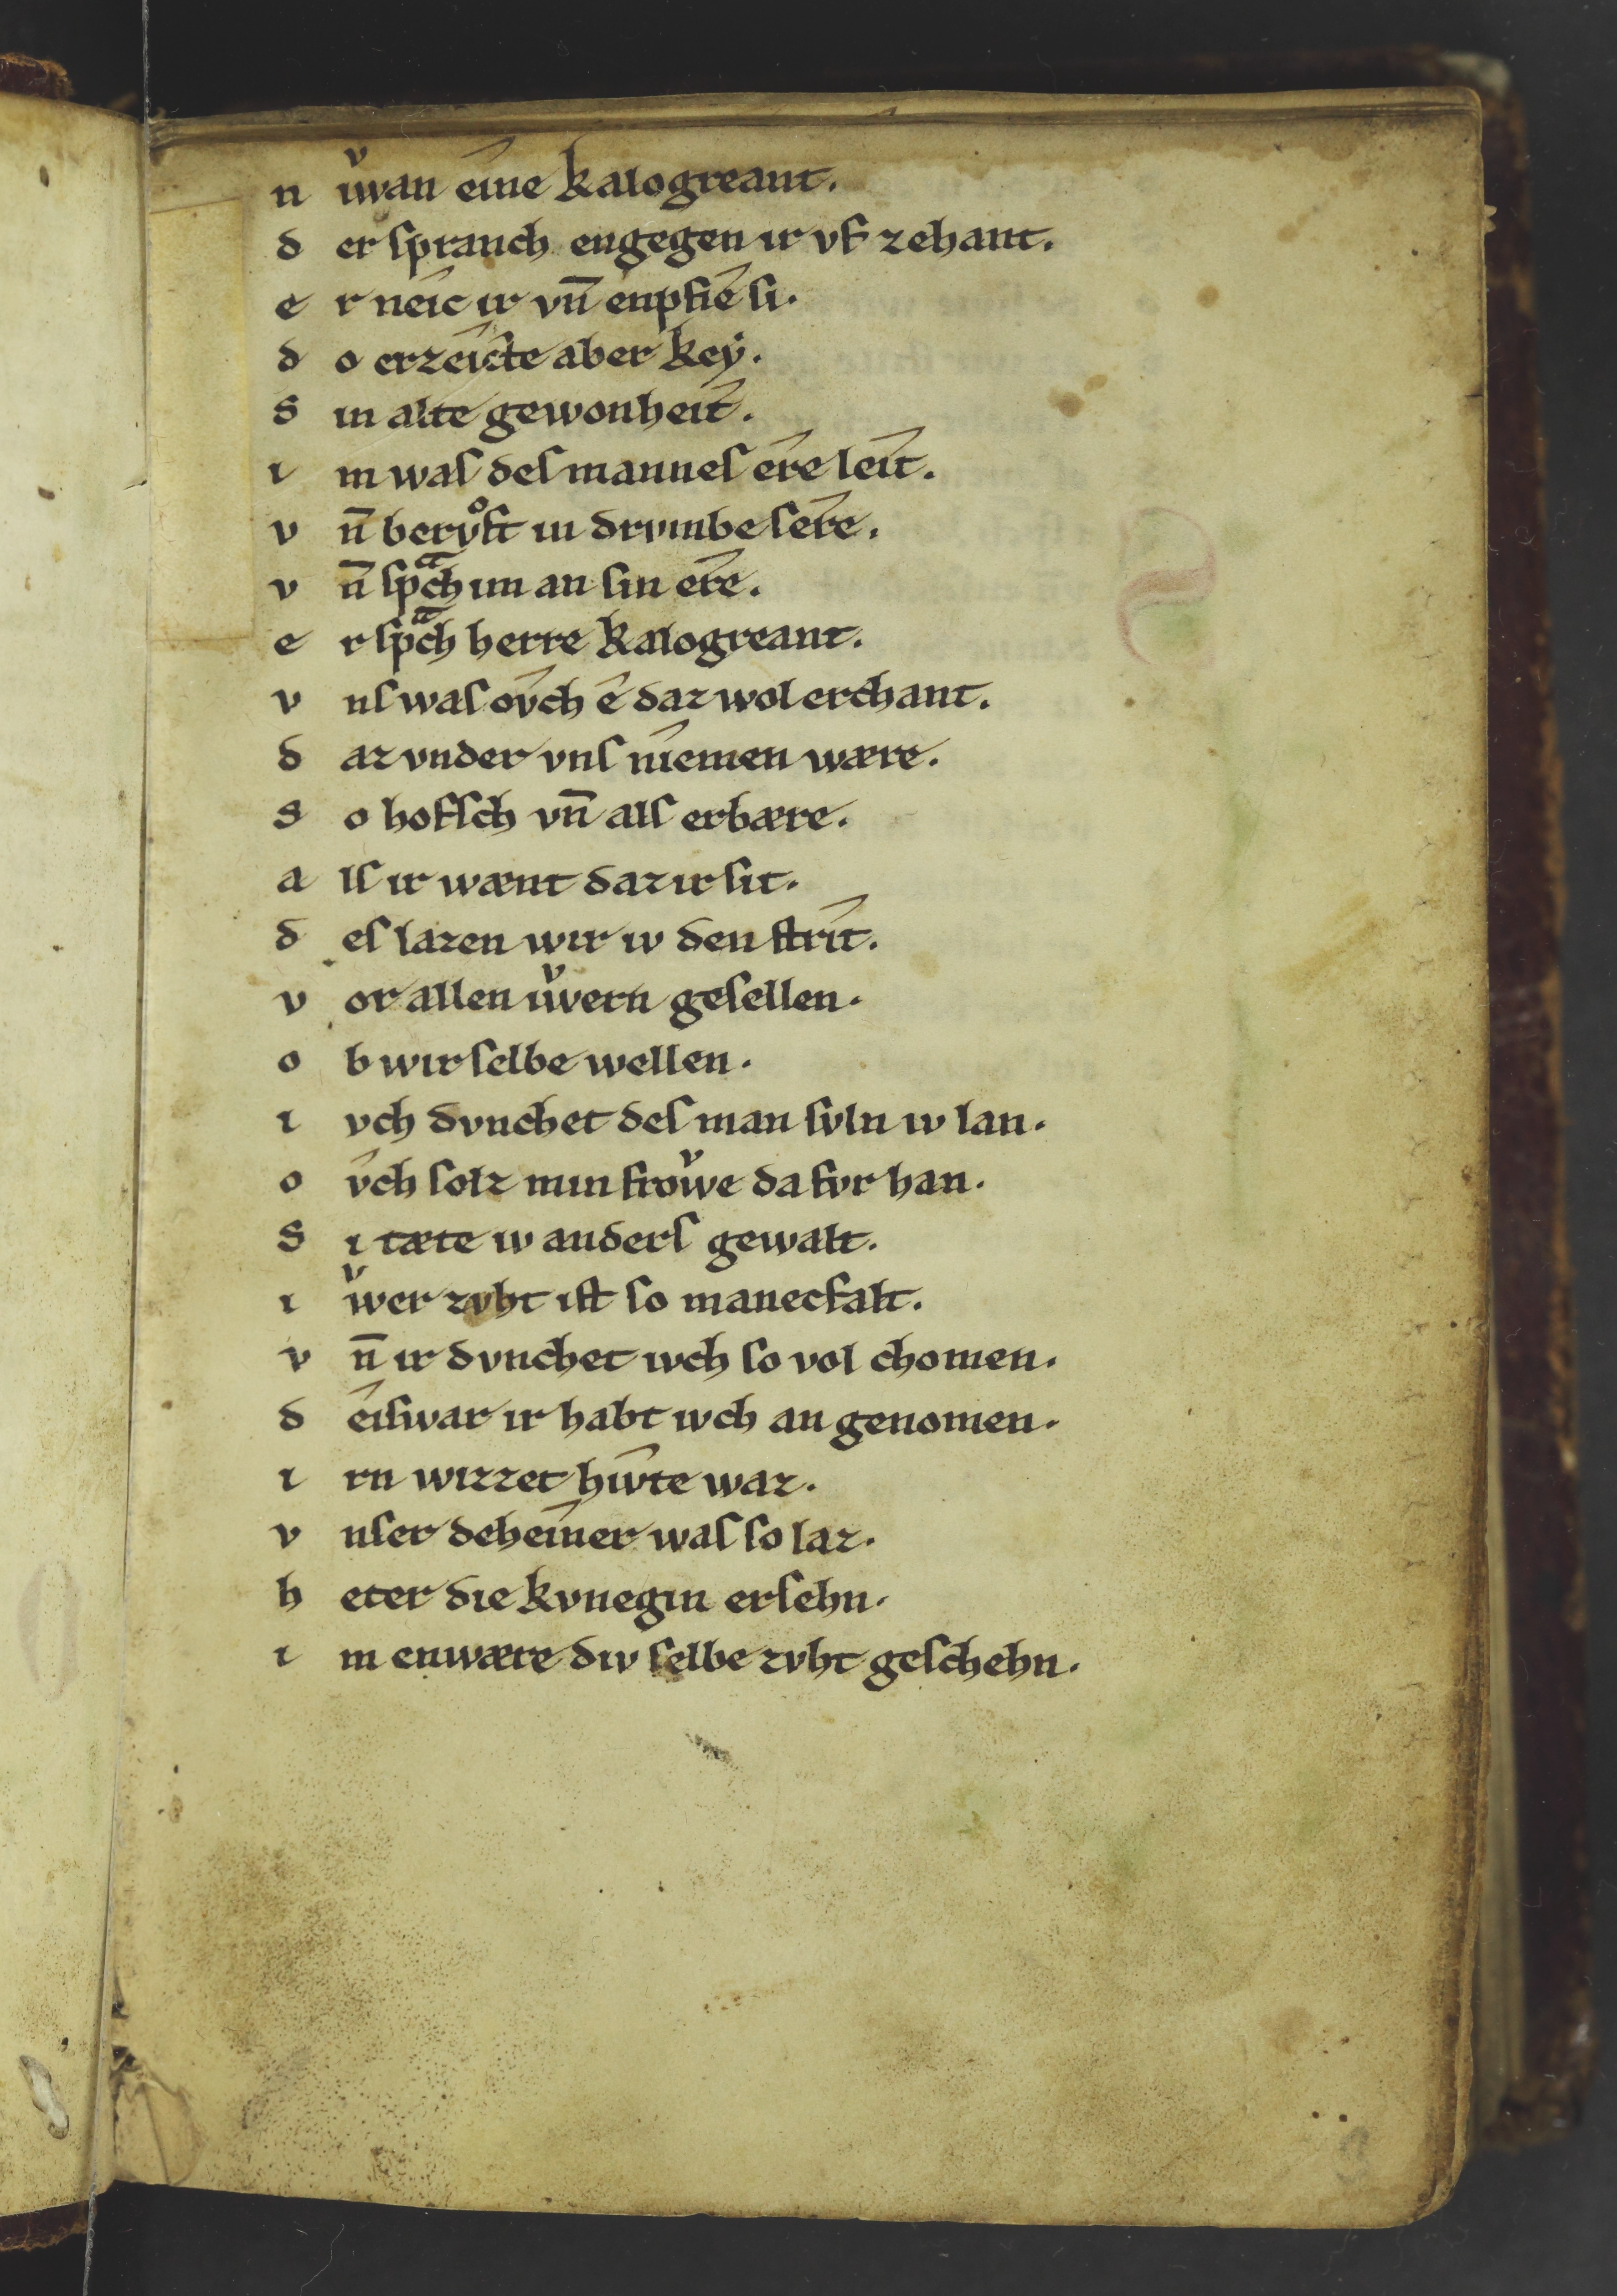 n iwͮan êine kalogreant.
d er sprauch engegen ir vf zehant.
e r neîc ir vn̄ enpfiê si.
d o erzeîcte aber keẏ.
s in alte gewonheît.
i m waſ deſ manneſ êre leît.
v n̄ bervͦft in drvmbe sêre.
v n̄ ſpᵃch im an ſin êre.
e r ſpᵃch herre kalogreant.
v nſ waſ ov̂ch ê daz wol erchant.
d az vnder vnſ nîemen wære.
s o hofſch vn̄ alſ erbære.
a lſ ir wænt daz ir ſit.
d eſ lazen wir iv den ſtrît.
v or allen iwͮern geſellen.
o b wir ſelbe wellen.
i vch dvnchet deſ man ſvln iv lan.
o v̂ch ſolz min frowͮe da fvr han.
s i tæte iv anderſ gewalt.
i wͮer zvht iſt ſo manecfalt.
v n̄ ir dvnchet ivch ſo vol chomen.
d êiſwar ir habt ivch an genomen.
i rn wizzet hîvte waz.
v nſer deheîner waſ ſo laz.
h eter die kvnegin erſehn.
i m enwære div ſelbe zvht geſchehn.